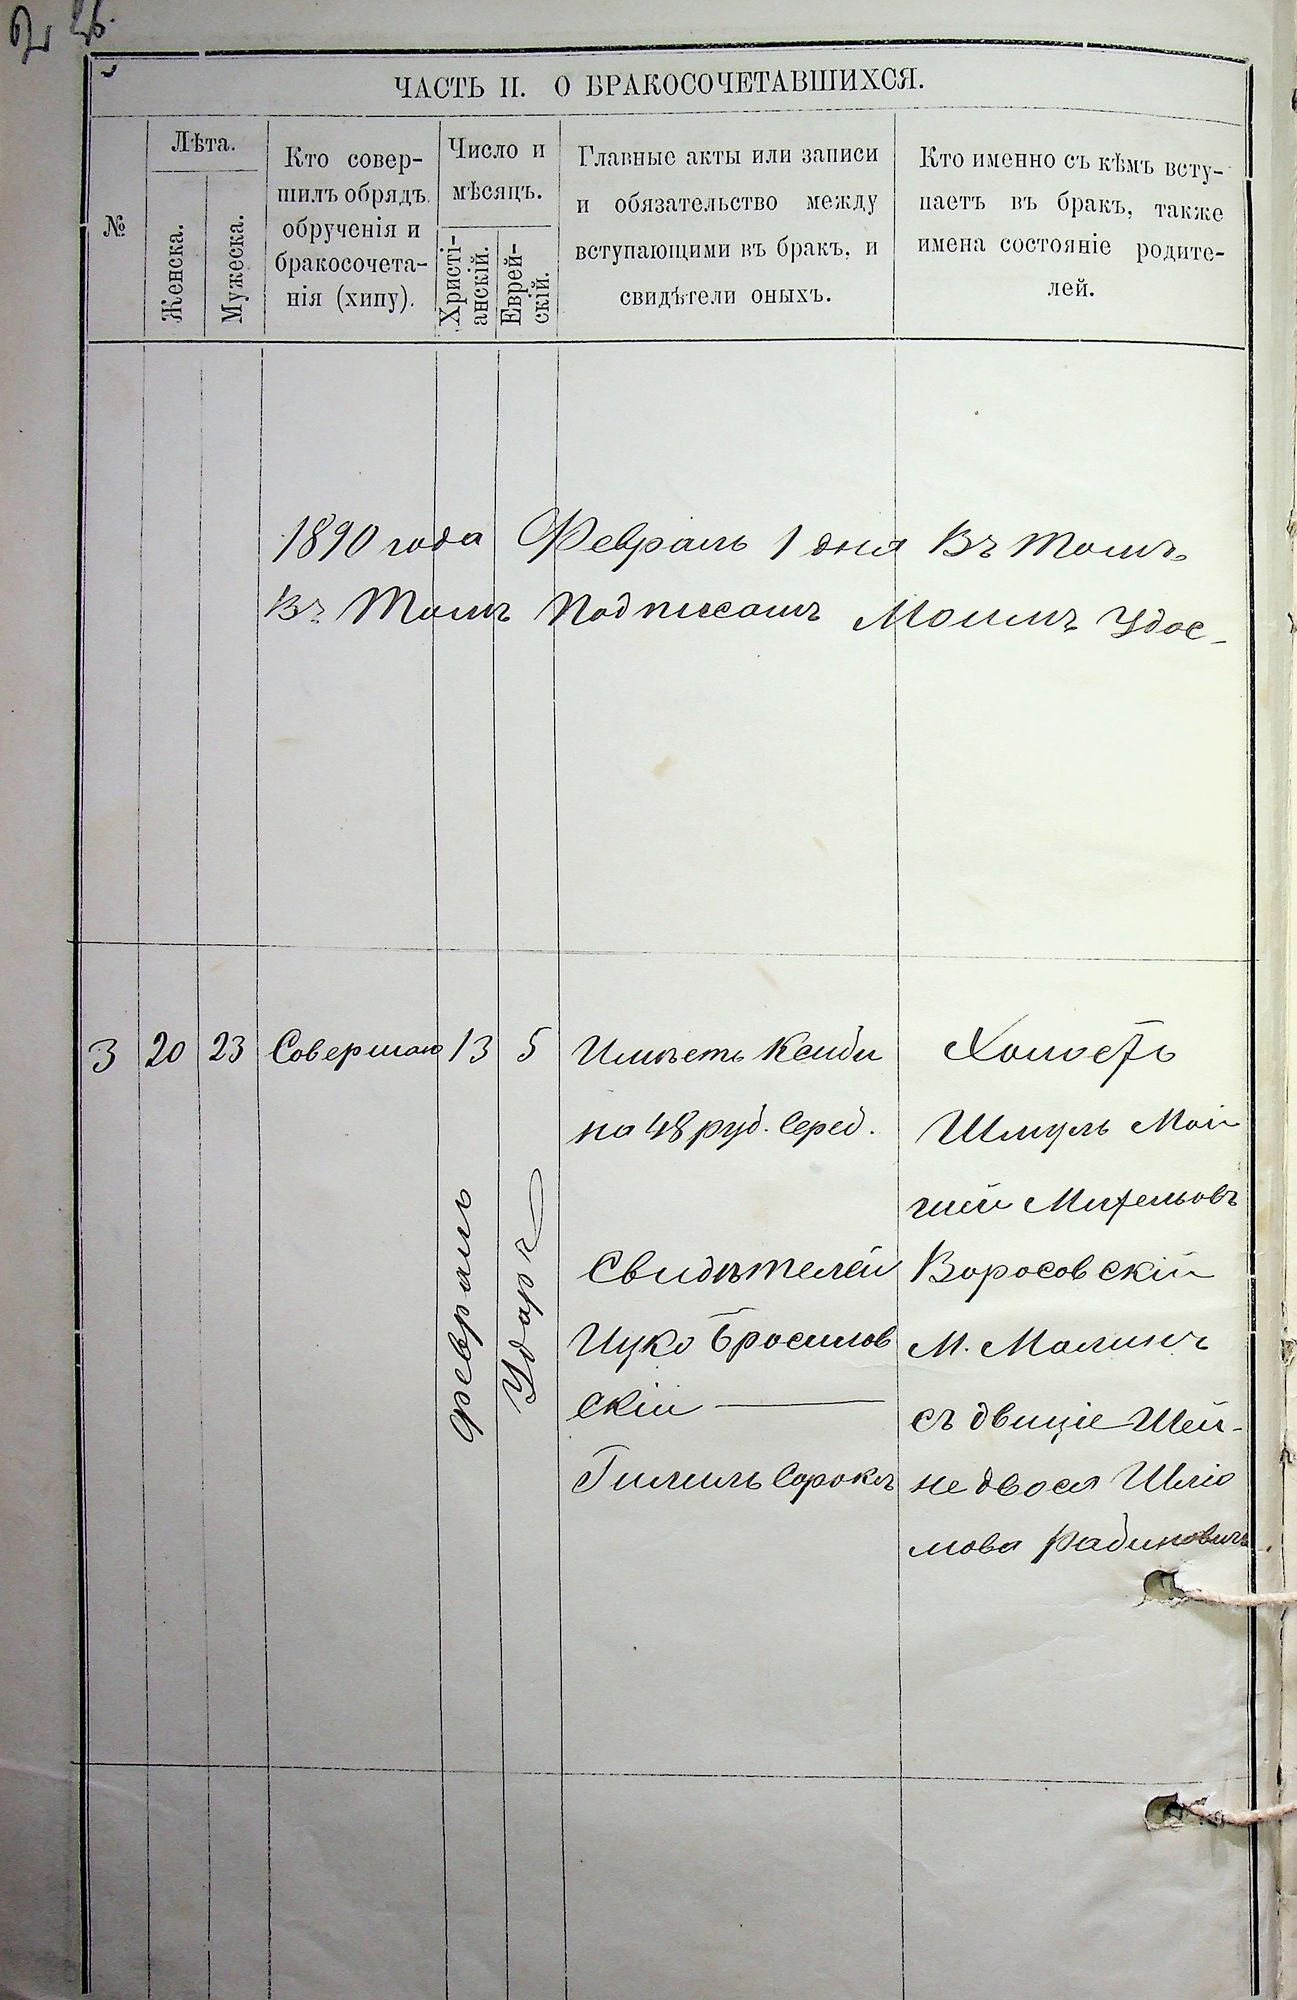 ЧАСТЬ II. О БРАКОСОЧЕТАВШИХСЯ.
№
Лѣта.
Женска.
Мужеска.
Кто совер-
шилъ обрядъ
обрученія и
бракосочета-
нія (хипу).
Число и
мѣсяцъ.
Христі-
анскій.
Еврей-
скій.
Главные акты или записи
и обязательство между
вступающими въ бракъ, и
свидѣтели оныхъ.
Кто именно съ кѣмъ всту-
паетъ въ бракъ, также
имена состояніе родите-
лей.
1890 года Февраль 1 дня Въ томъ
Въ томъ Подписомъ Моимъ Удос-
3
20
23
Совершаю
13
Февраль
5
Удоръ
Имѣетъ Ксиби
на 48 руб. Сереб.
Свидѣтелей
Ицко Бросилов
скій
Гимпль Сорокъ
Холостъ
Шмуль Мои
Воросовскій
М. Малинъ
съ двице Шей-
не двося Шліо
мова Рабиновичъ